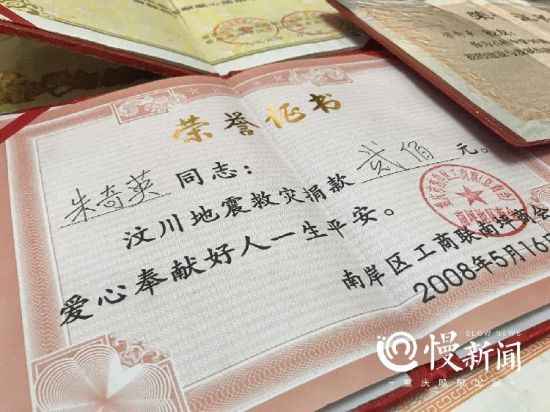 荣誉证书
朱奇英 同志：
汶川地震救灾捐款 贰佰 元。
爱心奉献好人一生平安。
南岸区工商联南坪商会
2008年5月16日
SLOW NEWS
慢新闻
重庆晚报出品